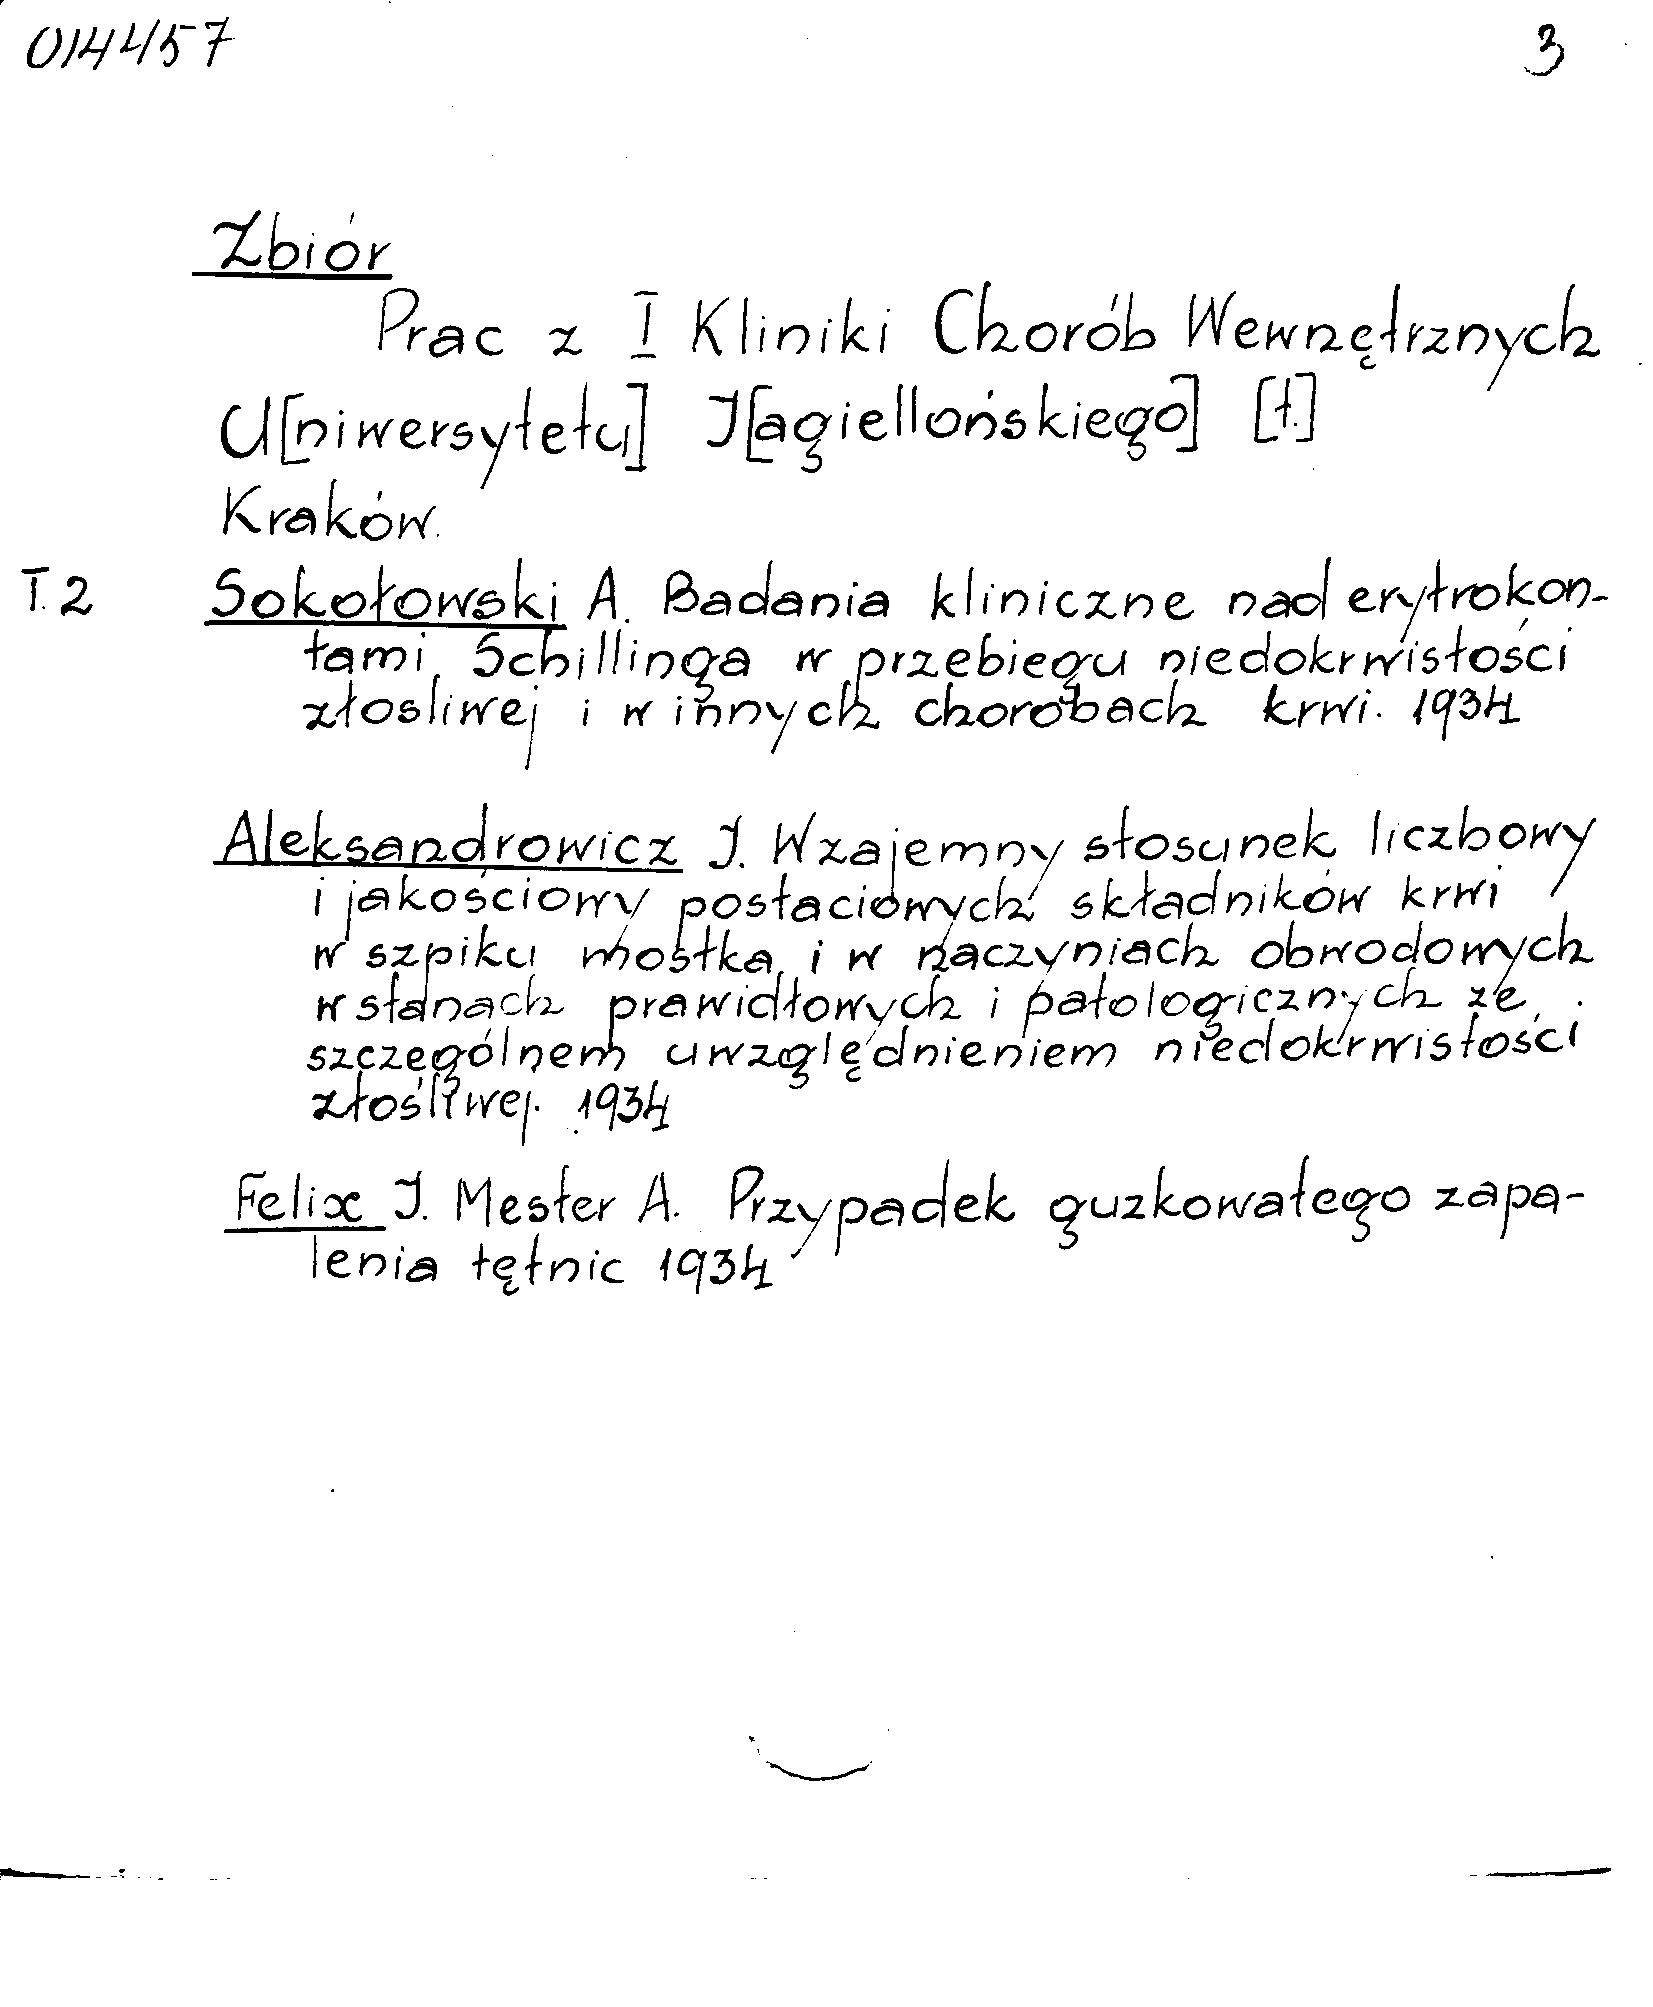 014457 3
Zbiór
Prac z I Kliniki Chorób Wewnętrznych
U[niwersytetu] J[agiellońskiego] [t.]
Kraków.
T. 2 Sokołowski A. Badania kliniczne nad erytrokon-
tami Schillinga w przebiegu niedokrwistości
złosliwej i w innych chorobach krwi. 1934
Aleksandrowicz J. Wzajemny stosunek liczbowy
i jakościowy postaciowych składników krwi
w szpiku mostka i w naczyniach obwodowych
w stanach prawidłowych i patologicznych ze
szczególnem uwzględnieniem niedokrwistości
złośliwej. 1934
Felix J. Mester A. Przypadek guzkowatego zapa-
lenia tętnic 1934